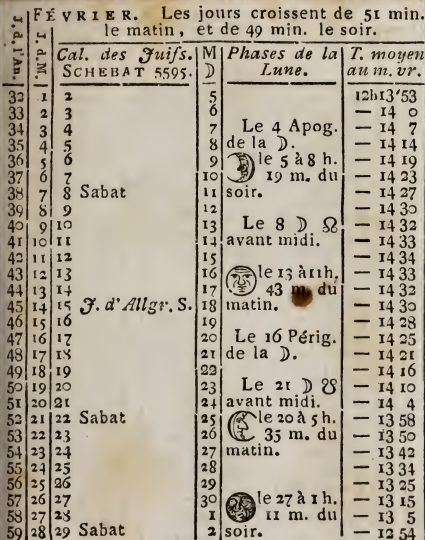 J. d. l'An.
J. d. M.
FÉVRIER. Les jours croissent de 51 min.
le matin, et de 49 min. le soir.
Cal. des Juifs. M Phases de la T. moyen
SCHEBAT 5595. ☽ Lune. au m. vr.
32 1 2 5 12h13'53
33 2 3 6 — 14 0
34 3 4 7 Le 4 Apog. — 14 7
35 4 5 8 de la ☽. — 14 14
36 5 6 9 le 5 à 8 h. — 14 19
37 6 7 10 19 m. du — 14 23
38 7 8 Sabat 11 soir. — 14 27
39 8 9 12 — 14 30
40 9 10 13 Le 8 ☽ ☊ — 14 32
41 10 11 14 avant midi. — 14 33
42 11 12 15 — 14 34
43 12 13 16 le 13 à 11h. — 14 33
44 13 14 17 43 m. du — 14 32
45 14 15 J. d'Allgr. S. 18 matin. — 14 30
46 15 16 19 — 14 28
47 16 17 20 Le 16 Périg. — 14 25
48 17 18 21 de la ☽. — 14 21
49 18 19 22 — 14 16
50 19 20 23 Le 21 ☽ ☋ — 14 10
51 20 21 24 avant midi. — 14 4
52 21 22 Sabat 25 le 20 à 5 h. — 13 58
53 22 23 26 35 m. du — 13 50
54 23 24 27 matin. — 13 42
55 24 25 28 — 13 34
56 25 26 29 — 13 25
57 26 27 30 le 27 à 1 h. — 13 15
58 27 28 1 11 m. du — 13 5
59 28 29 Sabat 2 soir. — 12 54